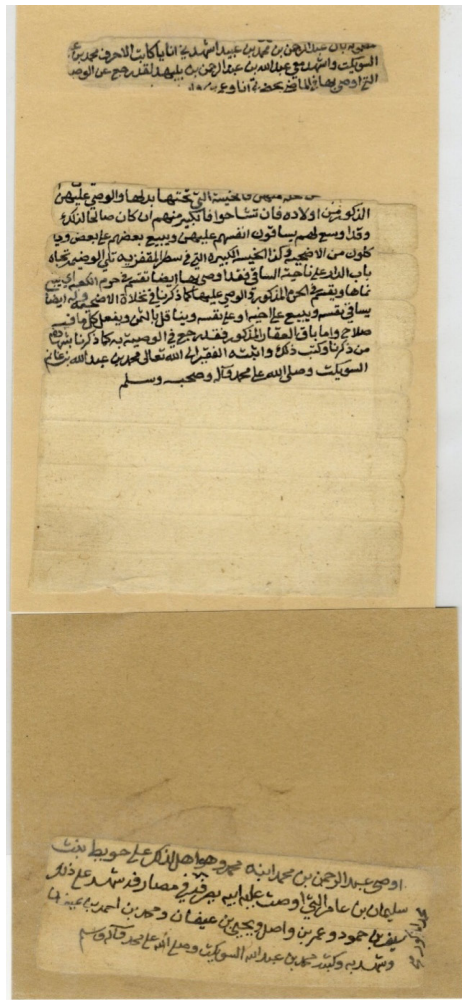 بان عبدالرحمن بن محمد بن عبيد اشهدني انا يا كاتب الاحرف محمد بن
السويكت واشهد معي عبدالله بن عبدالرحمن بن بليهد لقد رجع عن الوصية
التي اوصى بها
منهن فالخيسة التي تحتها بدلها والوصي عليهن
الذكور من اولاده فان تشاحوا فالكبير منهم ان كان صالحا لذلك
وقد اوسع لهم يساقون انفسهم عليهن ويبيع بعضهم على بعض ويا
كلون من الاضحية وكذا الخيسة الكبيره التي في سطر المقفزيه تلي الوضيم تجاه
باب الدار على ناحية الساقي فقد اوصى بها ايضا تقسم في حرم
نماها ويقسم في الحرم المذكور والوصي عليها كما ذكرنا في غلاة الاضحية وله ايضا
يساقي نفسه ويبيع على اخيه او على نفسه ويناقل بالثمن ويفعل كل ما فيه
صلاح واما باقي العقار المذكور فقد رجع في الوصية به كما ذكرنا شهد
من ذكرنا وكتب ذلك واثبته الفقير الى الله تعالى محمد بن عبدالله بن غانم
السويكت وصلى الله على محمد وآله وصحبه وسلم
اوصى عبدالرحمن بن محمد ابنه محمد وهو اهل لذلك على حويط بنت
سليمان بن عامر التي اوصت على يصرفه في مصارفه شهد على ذلك
سيف بن حمود وعمر بن واصل ويحيى بن عيفان ومحمد بن احمد بن عيفان
وشهد به وكتبه محمد بن عبدالله السويكت وصلى الله على محمد وآله وسلم